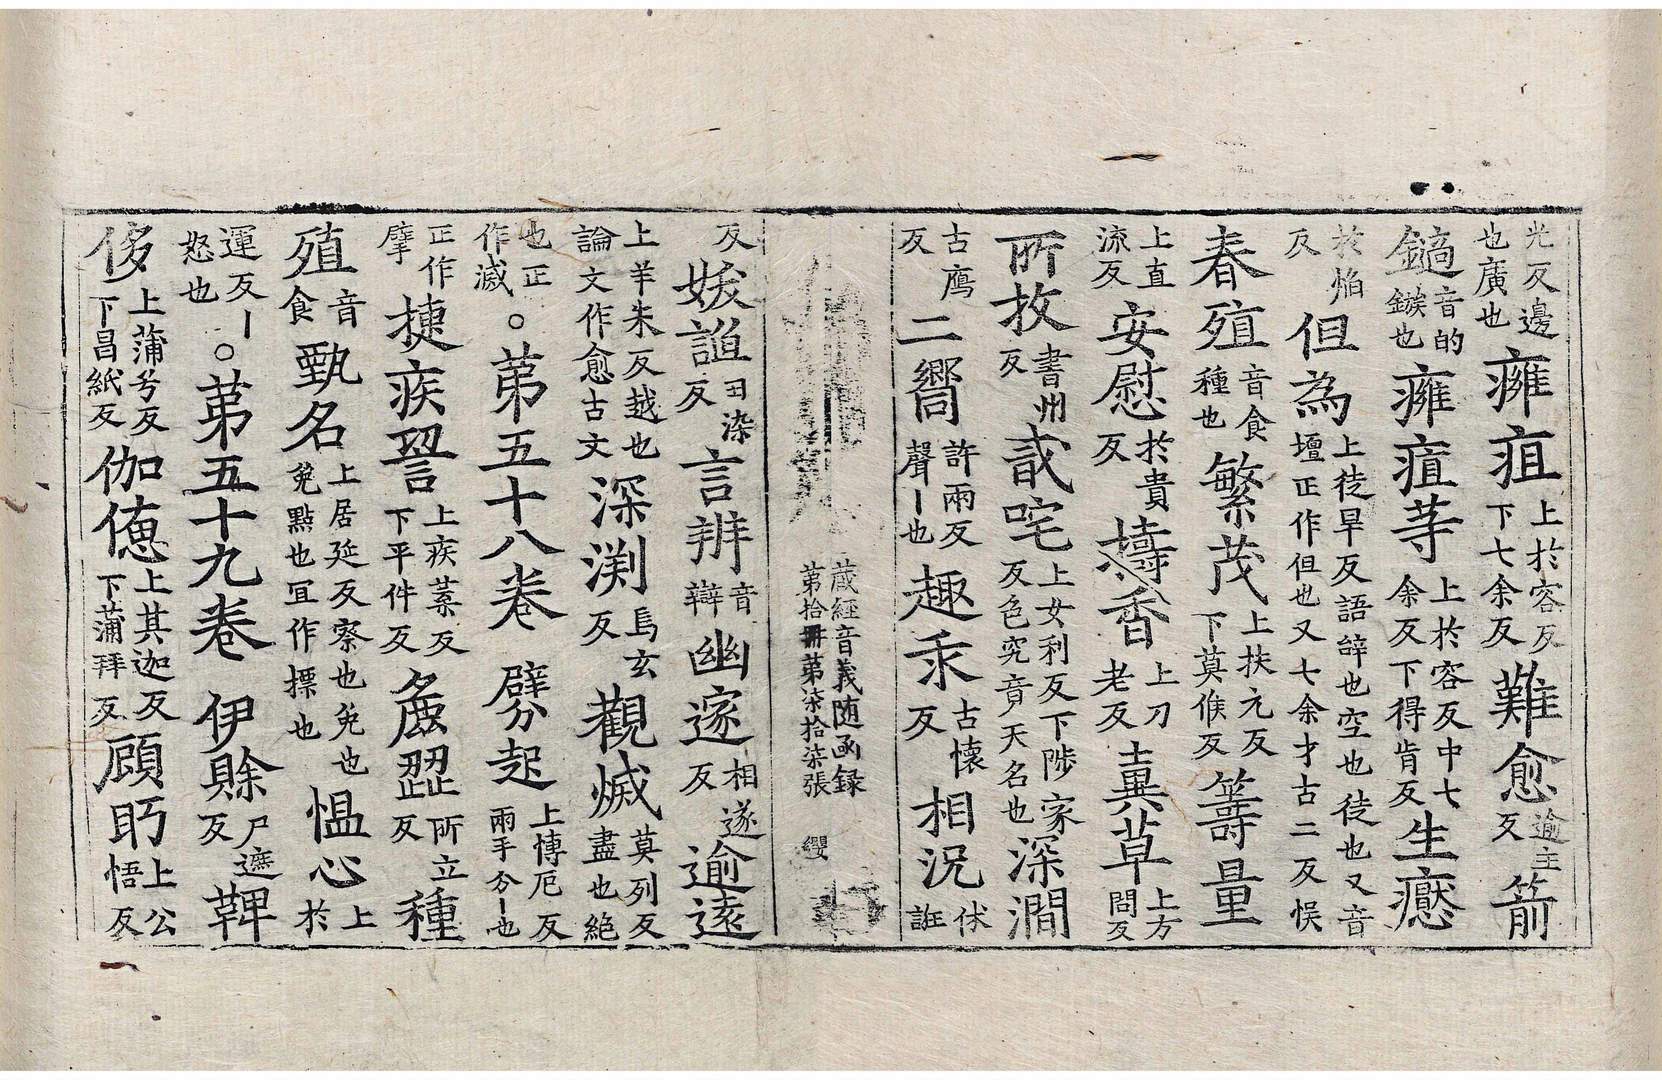 光反邊也廣也癰疽上於容反下七余反難愈逾主反箭
鏑音的鏃也癰疽䓁上於容反中七余反下得肯反生癋
於焰反但為上徒旱反語辝也空也徒也又音壇正作但也又七余才古二反悮
春殖音食種也繁茂上扶元反下莫候反籌量
上直流反安慰於貴反擣香上刀老反糞草上方問反
所抆書州反咤上女利反下陟家反色究音天名也深澗
古鴈反二嚮許兩反聲丨也趣乖古懷反相況伏誑
蔵經音義随函録
第拾冊第柒拾柒張
纓
反媛誼田染反言辨音辯幽邃相遂反逾遠
上羊朱反越也論文作愈古文深渕烏玄反觀烕莫列反盡也絕
也正作滅。苐五十八卷 劈起上博厄反兩手分丨也
正作擘捷疾詈上疾葉反下平件反麁歰所立反種
殖音食甄名上居延反察也免也免點也冝作摽也愠心上於
運反丨怒也。苐五十九卷 伊賖尸遮反鞞
侈上蒲兮反下昌紙反伽㥁上其迦反下蒲拜反顧眄上公悟反